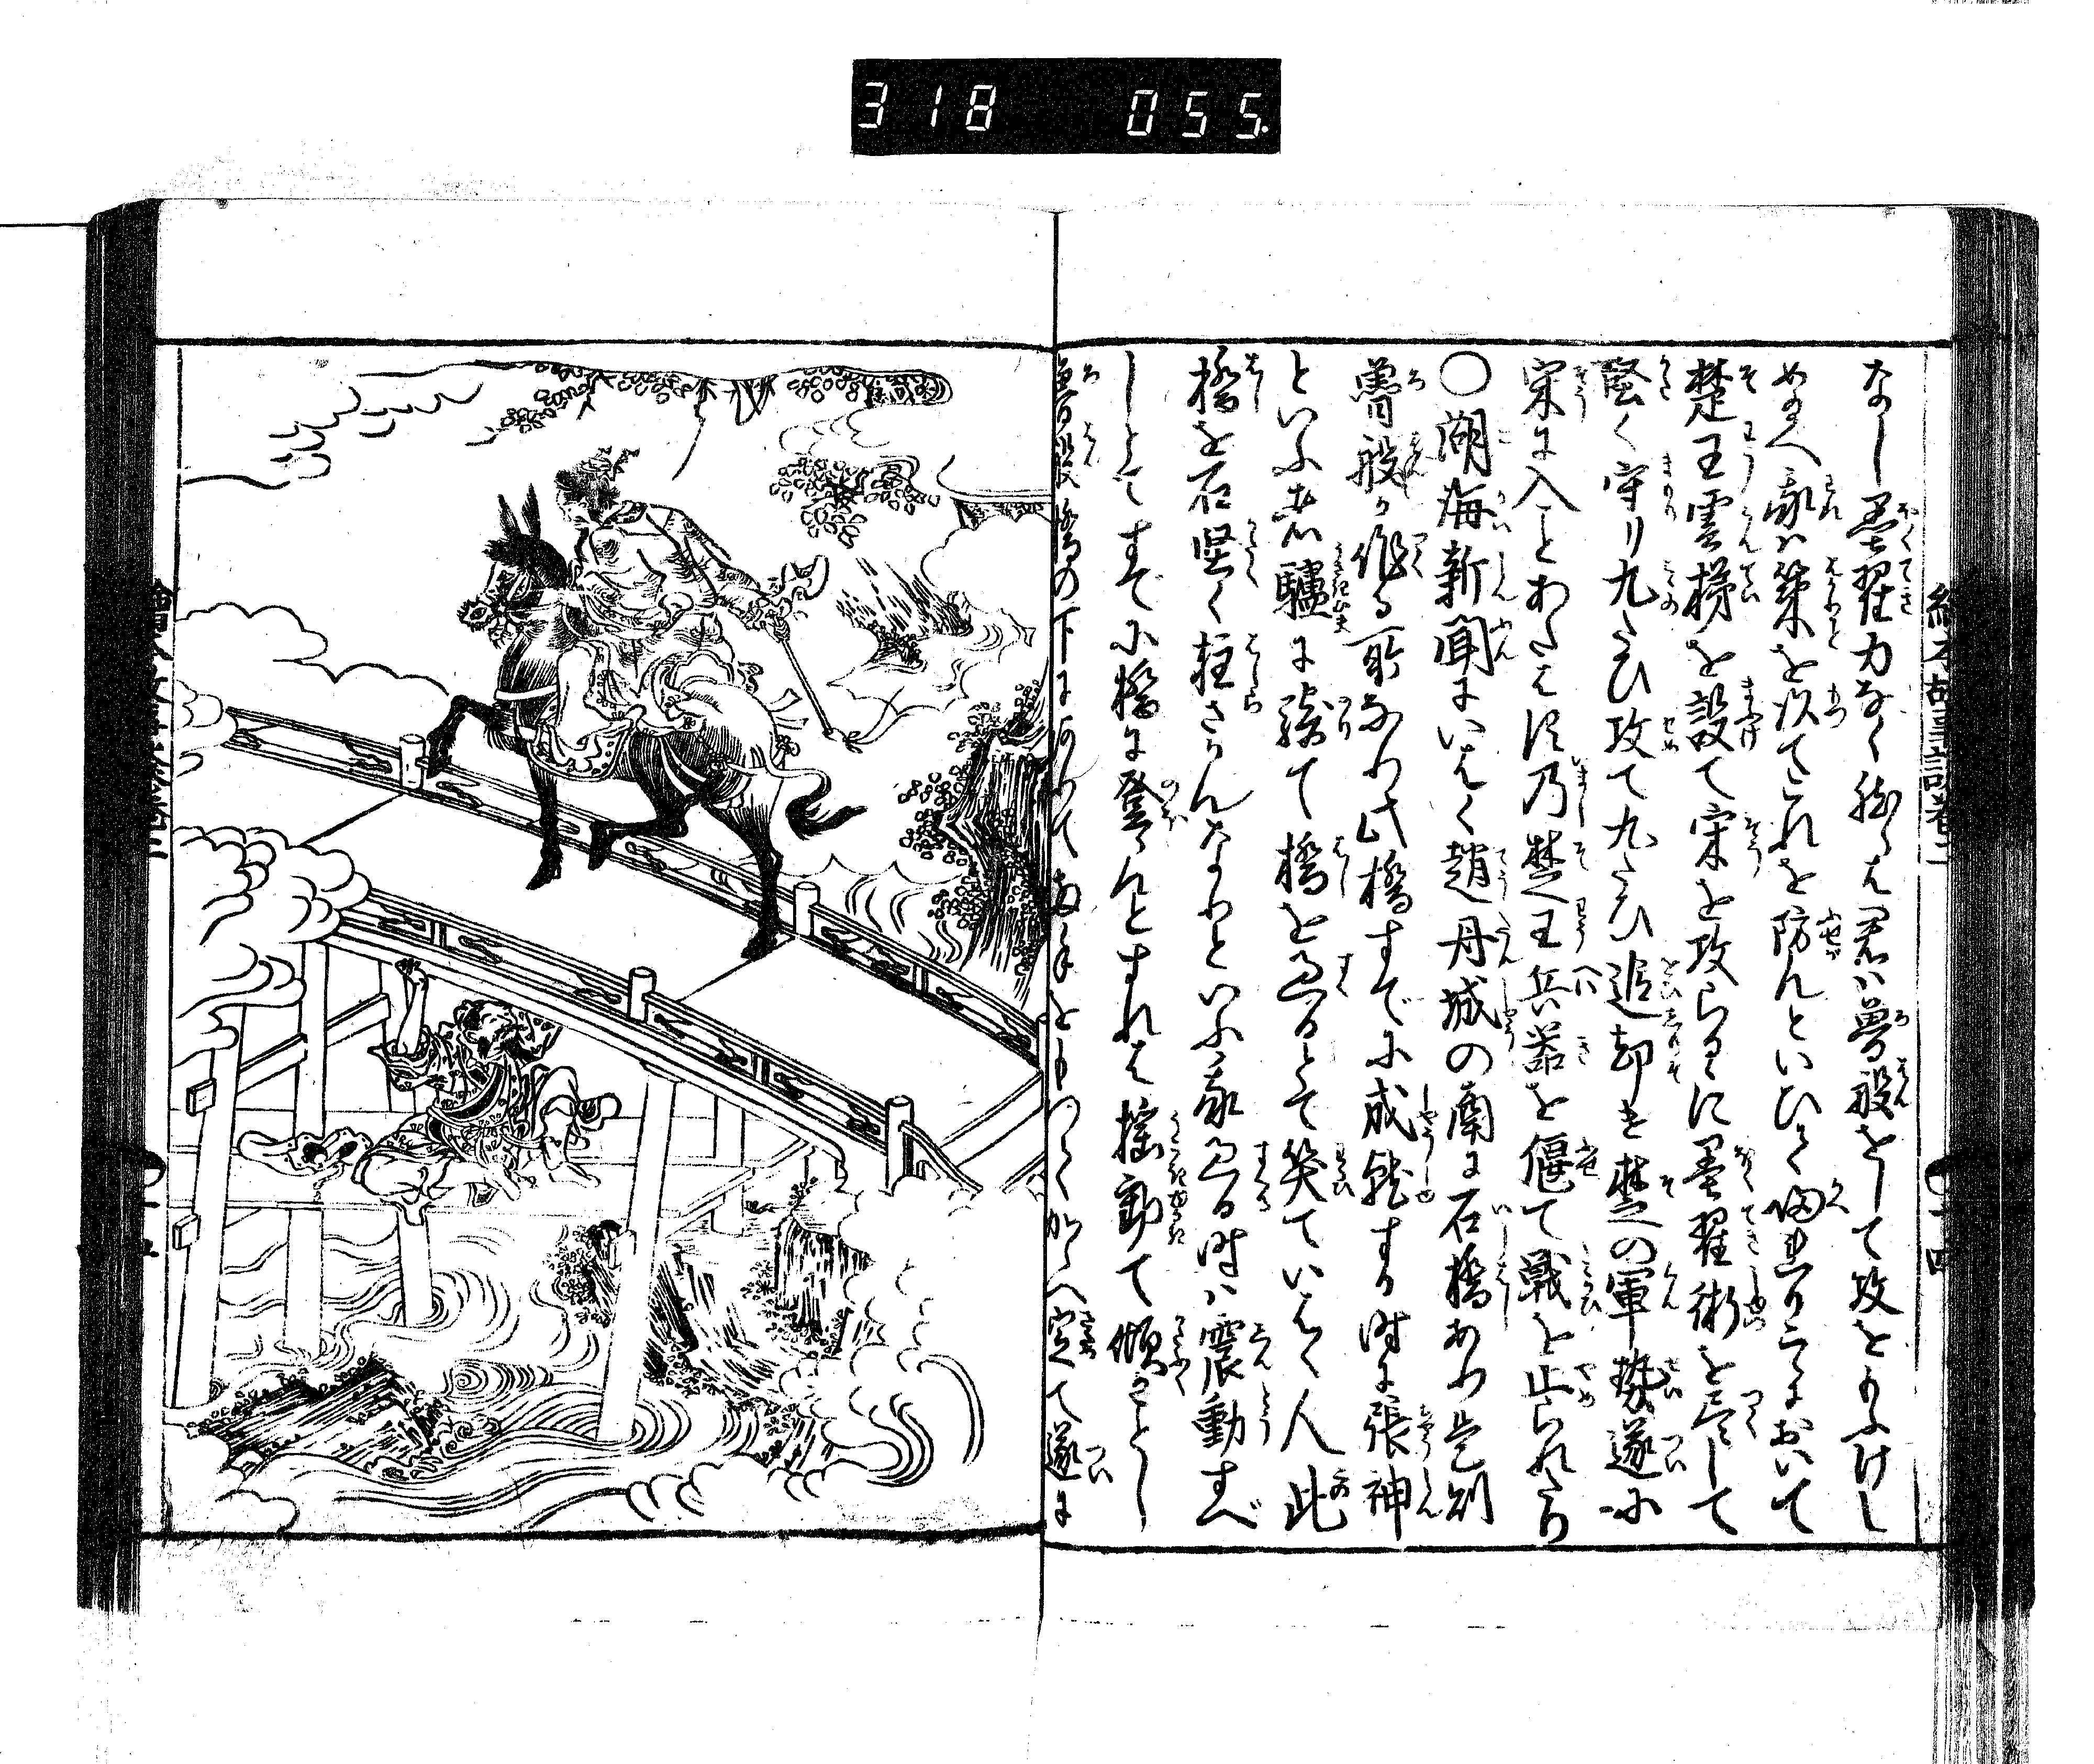 318 055
絵本故事談巻二
なし墨翟力なく然らは君ハ魯般をして攻をまふけし
めたまへ我ハ築を以てこれを防んといひて帰
楚王雲梯を設て宋を攻らるに墨翟術を尽して
堅く守リ九たひ攻て九たひ追却き楚の軍勢遂に
宋に入ことあたはす乃楚王兵器を偃て戦を止られたり
○湖海新聞にいはく趙州城の南に石橋あり是則
魯般が作る所なり此橋すでに成就する時に張神
といふ者驢に騎て橋を過るとて笑ていはく人此
橋を石堅く柱さかんなりといふ我過る時ハ震動すべ
しとてすでに橋に登んとすれは揺動て傾かことし
魯般橋の下にありて両手をもつて加へ定て遂に